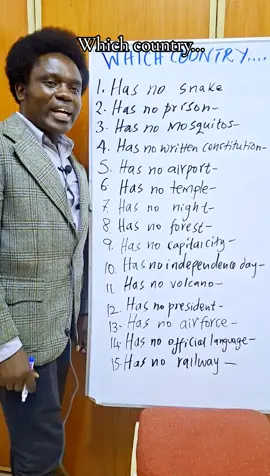 Which country...
WHICH COUNTRY....
1. Has no snake
2. Has no prison-
3. Has no Mosquitos-
4. Has no written constitution-
5. Has no airport-
6. Has no temple-
7. Has no night-
8. Has no forest-
9. Has no capital city-
10. Has no independence day-
11. Has no volcano-
12. Has no president-
13- Has no airforce-
14. Has no official language-
15. Has no railway-